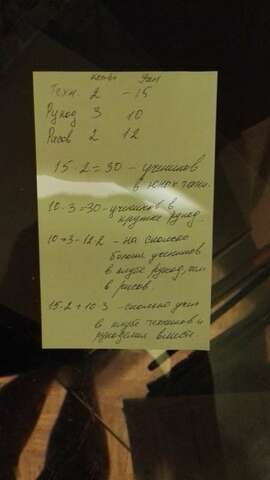 кол-во уч-ся
Техн. 2 - 15
Рукод 3 10
Рисов 2 12
15·2=30 - учеников
в юных техн.
10·3=30 - учеников в
кружке рукод.
10·3-12·2 - на сколько
больше учеников
в клубе рукод, чем
в рисов.
15·2+10·3 - сколько учен
в клубе техников и
рукоделия вместе.